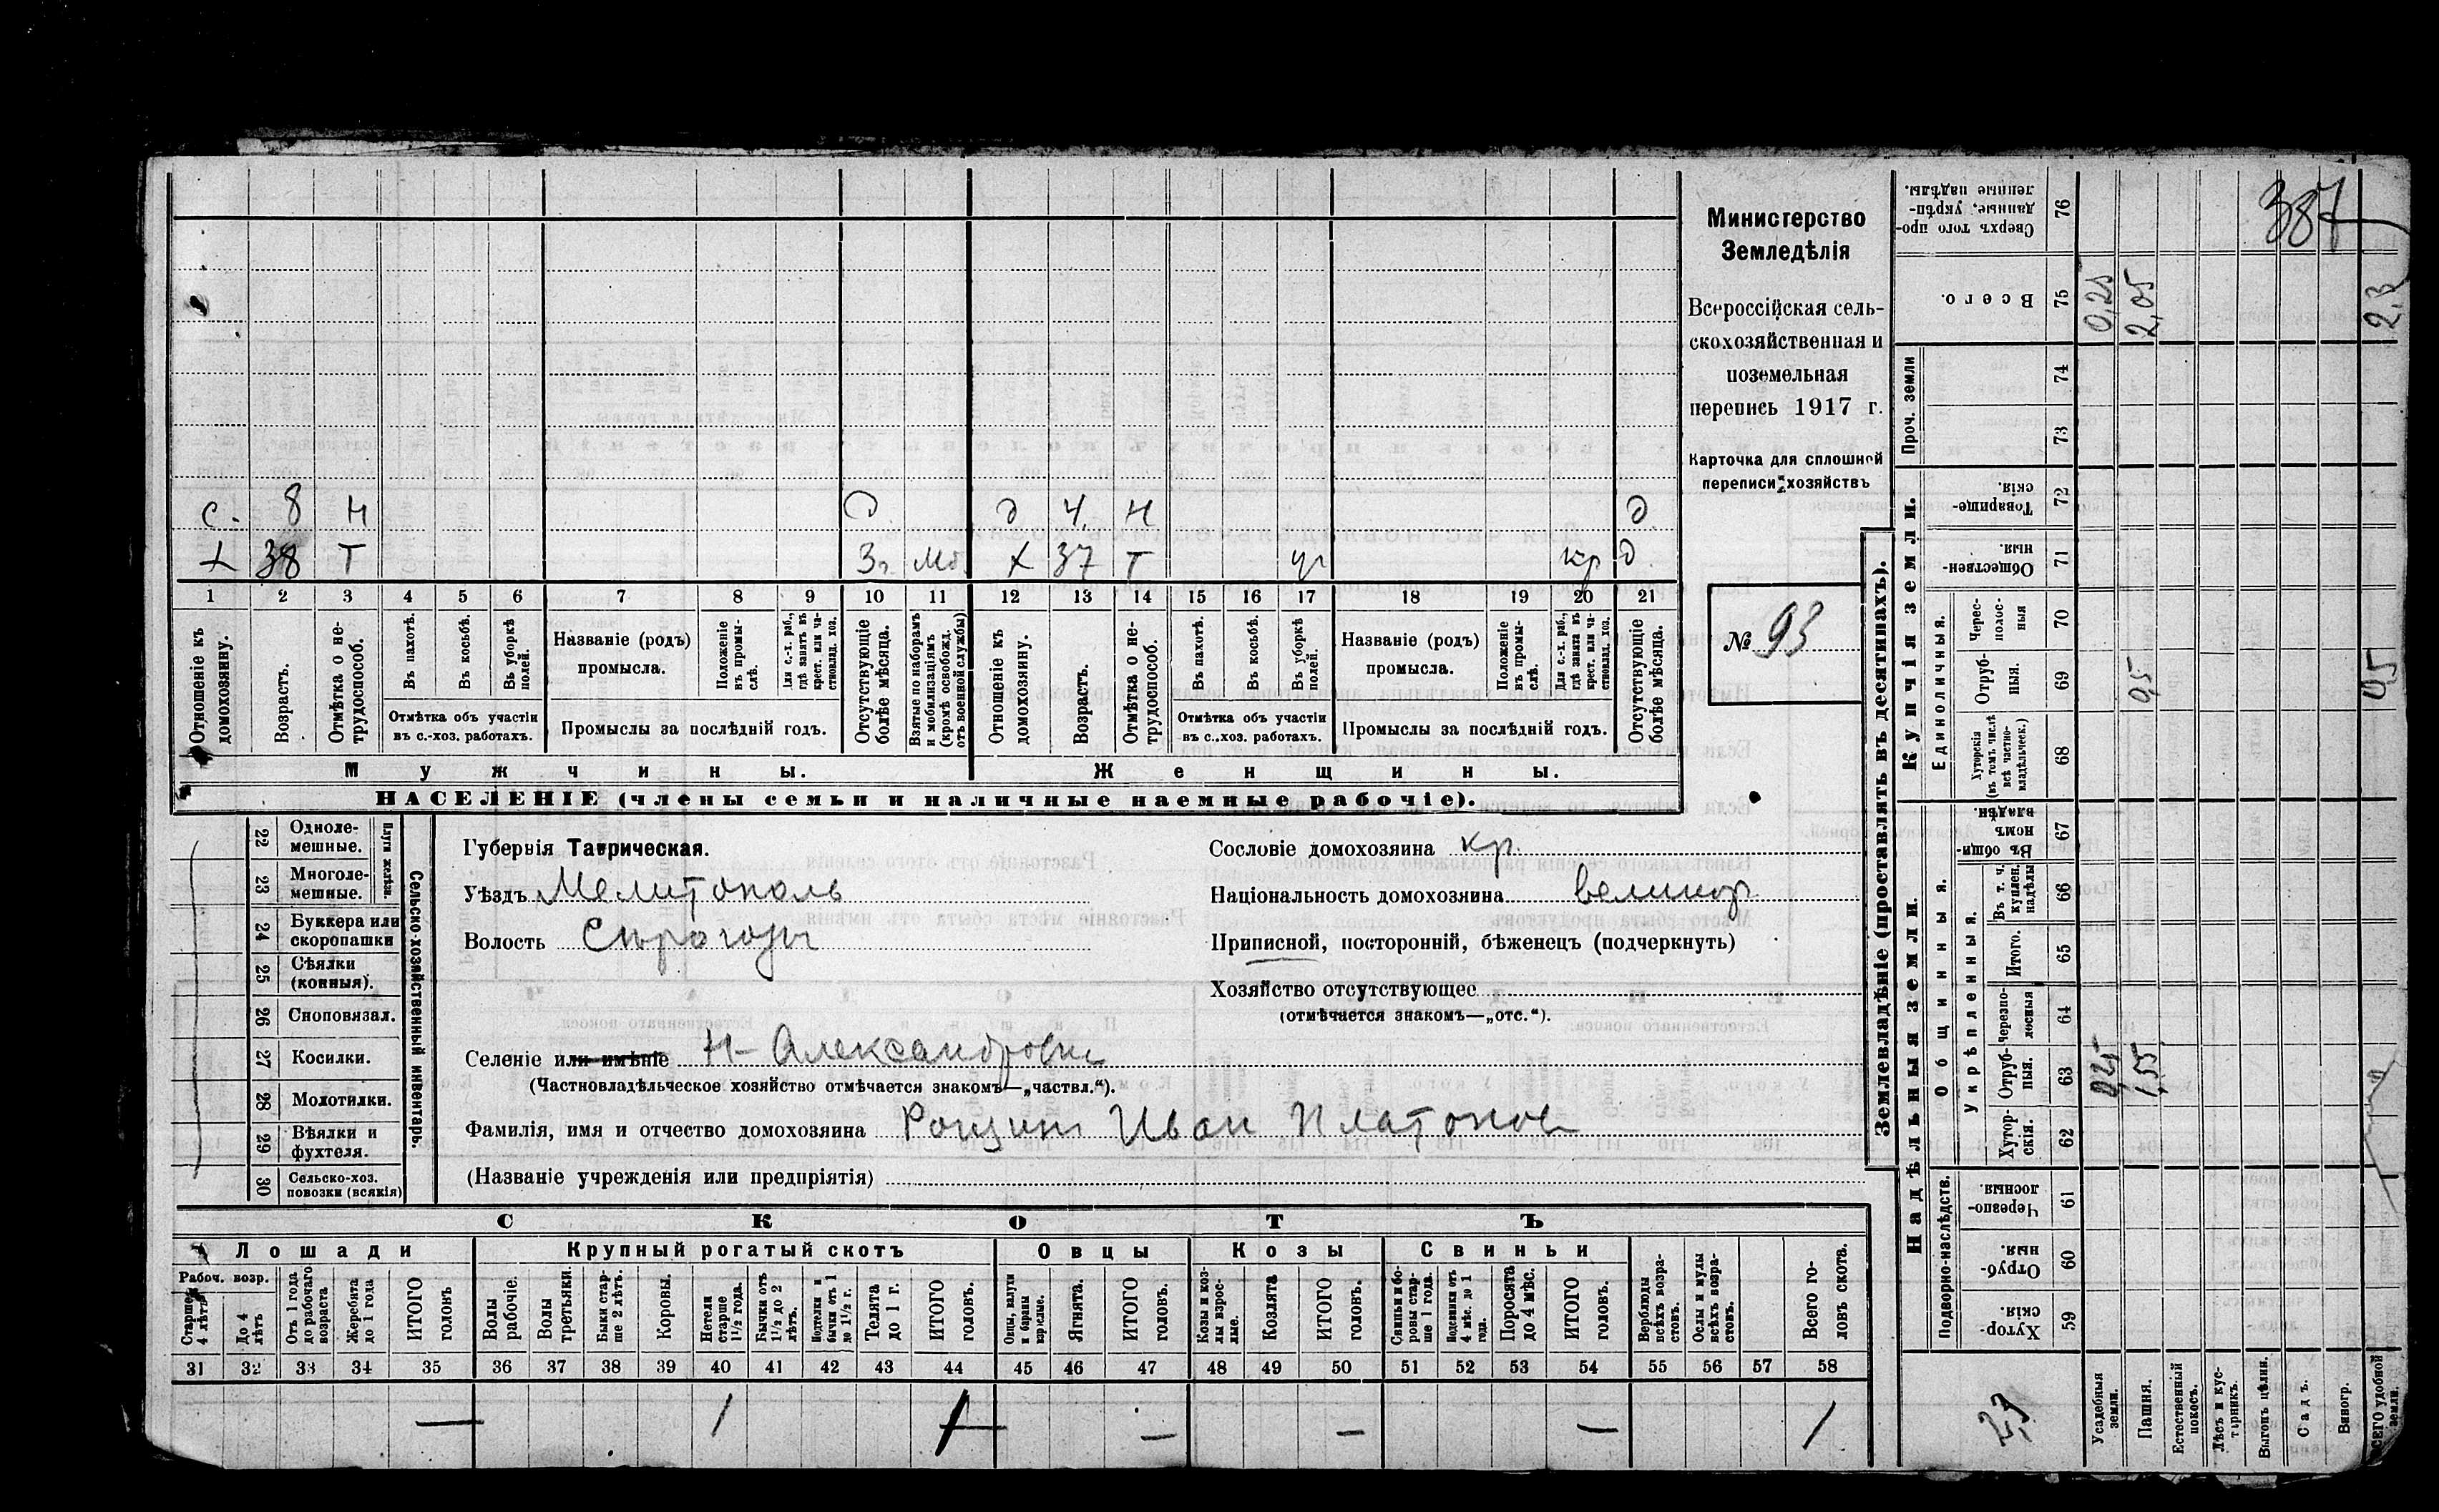 387
Министерство
Земледѣлія
Всероссійская сель-
скохозяйственная и
поземельная
перепись 1917 г.
Карточка для сплошной
переписи хозяйствъ
№ 93
с. 8 н д 4 н д
х 38 т Зг. Мб. х 37 т кр д
1 2 3 4 5 6 7 8 9 10 11 12 13 14 15 16 17 18 19 20 21
Отношеніе къ домохозяину.
Возрастъ.
Отмѣтка о не-трудоспособ.
Въ пахотѣ.
Въ косьбѣ.
Въ уборкѣ полей.
Отмѣтка объ участіи
въ с.-хоз. работахъ.
Названіе (родъ)
промысла.
Положеніе въ промы-слѣ.
Для с.-х. раб., гдѣ занятъ въ крест. или ча-стновлад. хоз.
Промыслы за послѣдній годъ.
Отсутствующіе болѣе мѣсяца.
Взятые по наборамъ и мобилизаціямъ (кромѣ освобожд. отъ военной службы)
Отношеніе къ домохозяину.
Возрастъ.
Отмѣтка о не-трудоспособ.
Въ пахотѣ.
Въ косьбѣ.
Въ уборкѣ полей.
Отмѣтка объ участіи
въ с.-хоз. работахъ.
Названіе (родъ)
промысла.
Положеніе въ промы-слѣ.
Для с.-х. раб., гдѣ занята въ крест. или ча-стновлад. хоз.
Промыслы за послѣдній годъ.
Отсутствующіе болѣе мѣсяца.
Мужчины.
Женщины.
НАСЕЛЕНІЕ (члены семьи и наличные наемные рабочіе).
22 Одноле-мешные.
23 Многоле-мешные.
Плуги желѣзн.
24 Буккера или скоропашки
25 Сѣялки (конныя).
26 Сноповязал.
27 Косилки.
28 Молотилки.
29 Вѣялки и фухтеля.
30 Сельско-хоз. повозки (всякія)
Сельско-хозяйственный инвентарь.
Губернія Таврическая.
Уѣздъ Мелитополь
Волость Сѣрогозы
Селеніе или имѣніе Н-Александровка
(Частновладѣльческое хозяйство отмѣчается знакомъ—„частвл.“).
Фамилія, имя и отчество домохозяина Рощин Иван Платонов
(Названіе учрежденія или предпріятія)
Сословіе домохозяина кр.
Національность домохозяина великор.
Приписной, посторонній, бѣженецъ (подчеркнуть)
Хозяйство отсутствующее
(отмѣчается знакомъ—„отс.“).
СКОТЪ
Лошади
Крупный рогатый скотъ
Овцы
Козы
Свиньи
Рабоч. возр.
Старше 4 лѣтъ
До 4 лѣтъ
Отъ 1 года до рабочаго возраста
Жеребята до 1 года
ИТОГО головъ
Волы рабочіе.
Волы третьяки.
Быки стар-ше 2 лѣтъ.
Коровы.
Нетели старше 1½ года.
Бычки отъ 1½ до 2 лѣтъ.
Подтелки и бычки отъ 1 до 1½ г.
Телята до 1 г.
ИТОГО головъ.
Овцы, валухи и бараны взрослые.
Ягнята.
ИТОГО головъ.
Козы и коз-лы взрос-лые.
Козлята
ИТОГО головъ.
Свиньи и бо-ровы стар-ше 1 года.
Подсвинки отъ 4 мѣс. до 1 года.
Поросята до 4 мѣс.
ИТОГО головъ.
Верблюды всѣхъ возра-стовъ.
Ослы и мулы всѣхъ возра-стовъ.
Всего го-ловъ скота.
31 32 33 34 35 36 37 38 39 40 41 42 43 44 45 46 47 48 49 50 51 52 53 54 55 56 57 58
— 1 1 — — — 1
Землевладѣніе (проставлять въ десятинахъ).
Надѣльныя земли.
Купчія земли.
Проч. земли
Подворно-наслѣдств.
Общинныя.
Укрѣпленныя.
Единоличныя.
Хутор-скія. 59
Отруб-ныя. 60
Черезпо-лосныя. 61
Хутор-скія. 62
Отруб-ныя. 63 0,25 1,55
Черезпо-лосныя 64
Итого. 65
Въ т. ч. куплен. надѣлы 66
Въ общин-номъ владѣн. 67
Хуторскія (въ томъ числѣ всѣ частно-владѣльческ.) 68
Отруб-ныя. 69 0,5 0,5
Черес-полос-ныя 70
Обществен-ныя. 71
Товарище-скія. 72
73
74
Всего. 75 0,25 2,05 2,3
Сверхъ того про-данные, укрѣп-ленные надѣлы. 76
2,3
Усадебныя земли.
Пашня.
Естественный покосъ.
Лѣсъ и кус-тарникъ.
Выгонъ цѣлин.
Садъ.
Виногр.
ВСЕГО удобной земли.